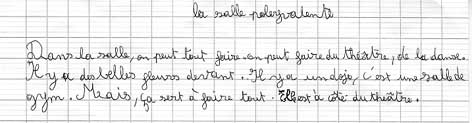 la salle polyvalente
Dans la salle, on peut tout faire on peut faire du théâtre, de la danse.
Il y a des belles fleurs devant. Il y a un dojo, c'est une salle de
gym. Mais, ça sert à faire tout. Elle est à côté du théâtre.